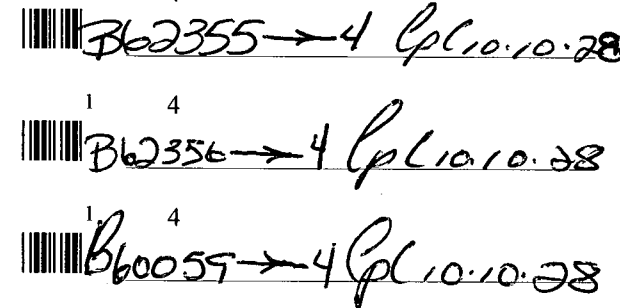 B62355→4 Cpl 10.10.28
1 4
B62356→4 Cpl 10.10.28
1. 4
B60059→4 Cpl 10.10.28